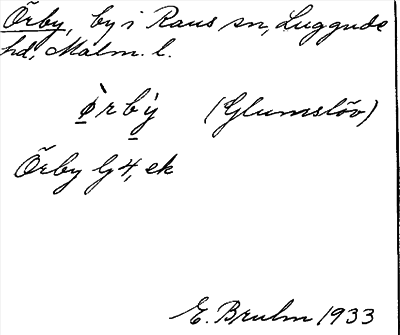 Örby, by i Raus sn, Luggude
hd, Malm. l.
ø̀rbỳ (Glumslöv)
Örby G4, ek
E. Bruhn 1933